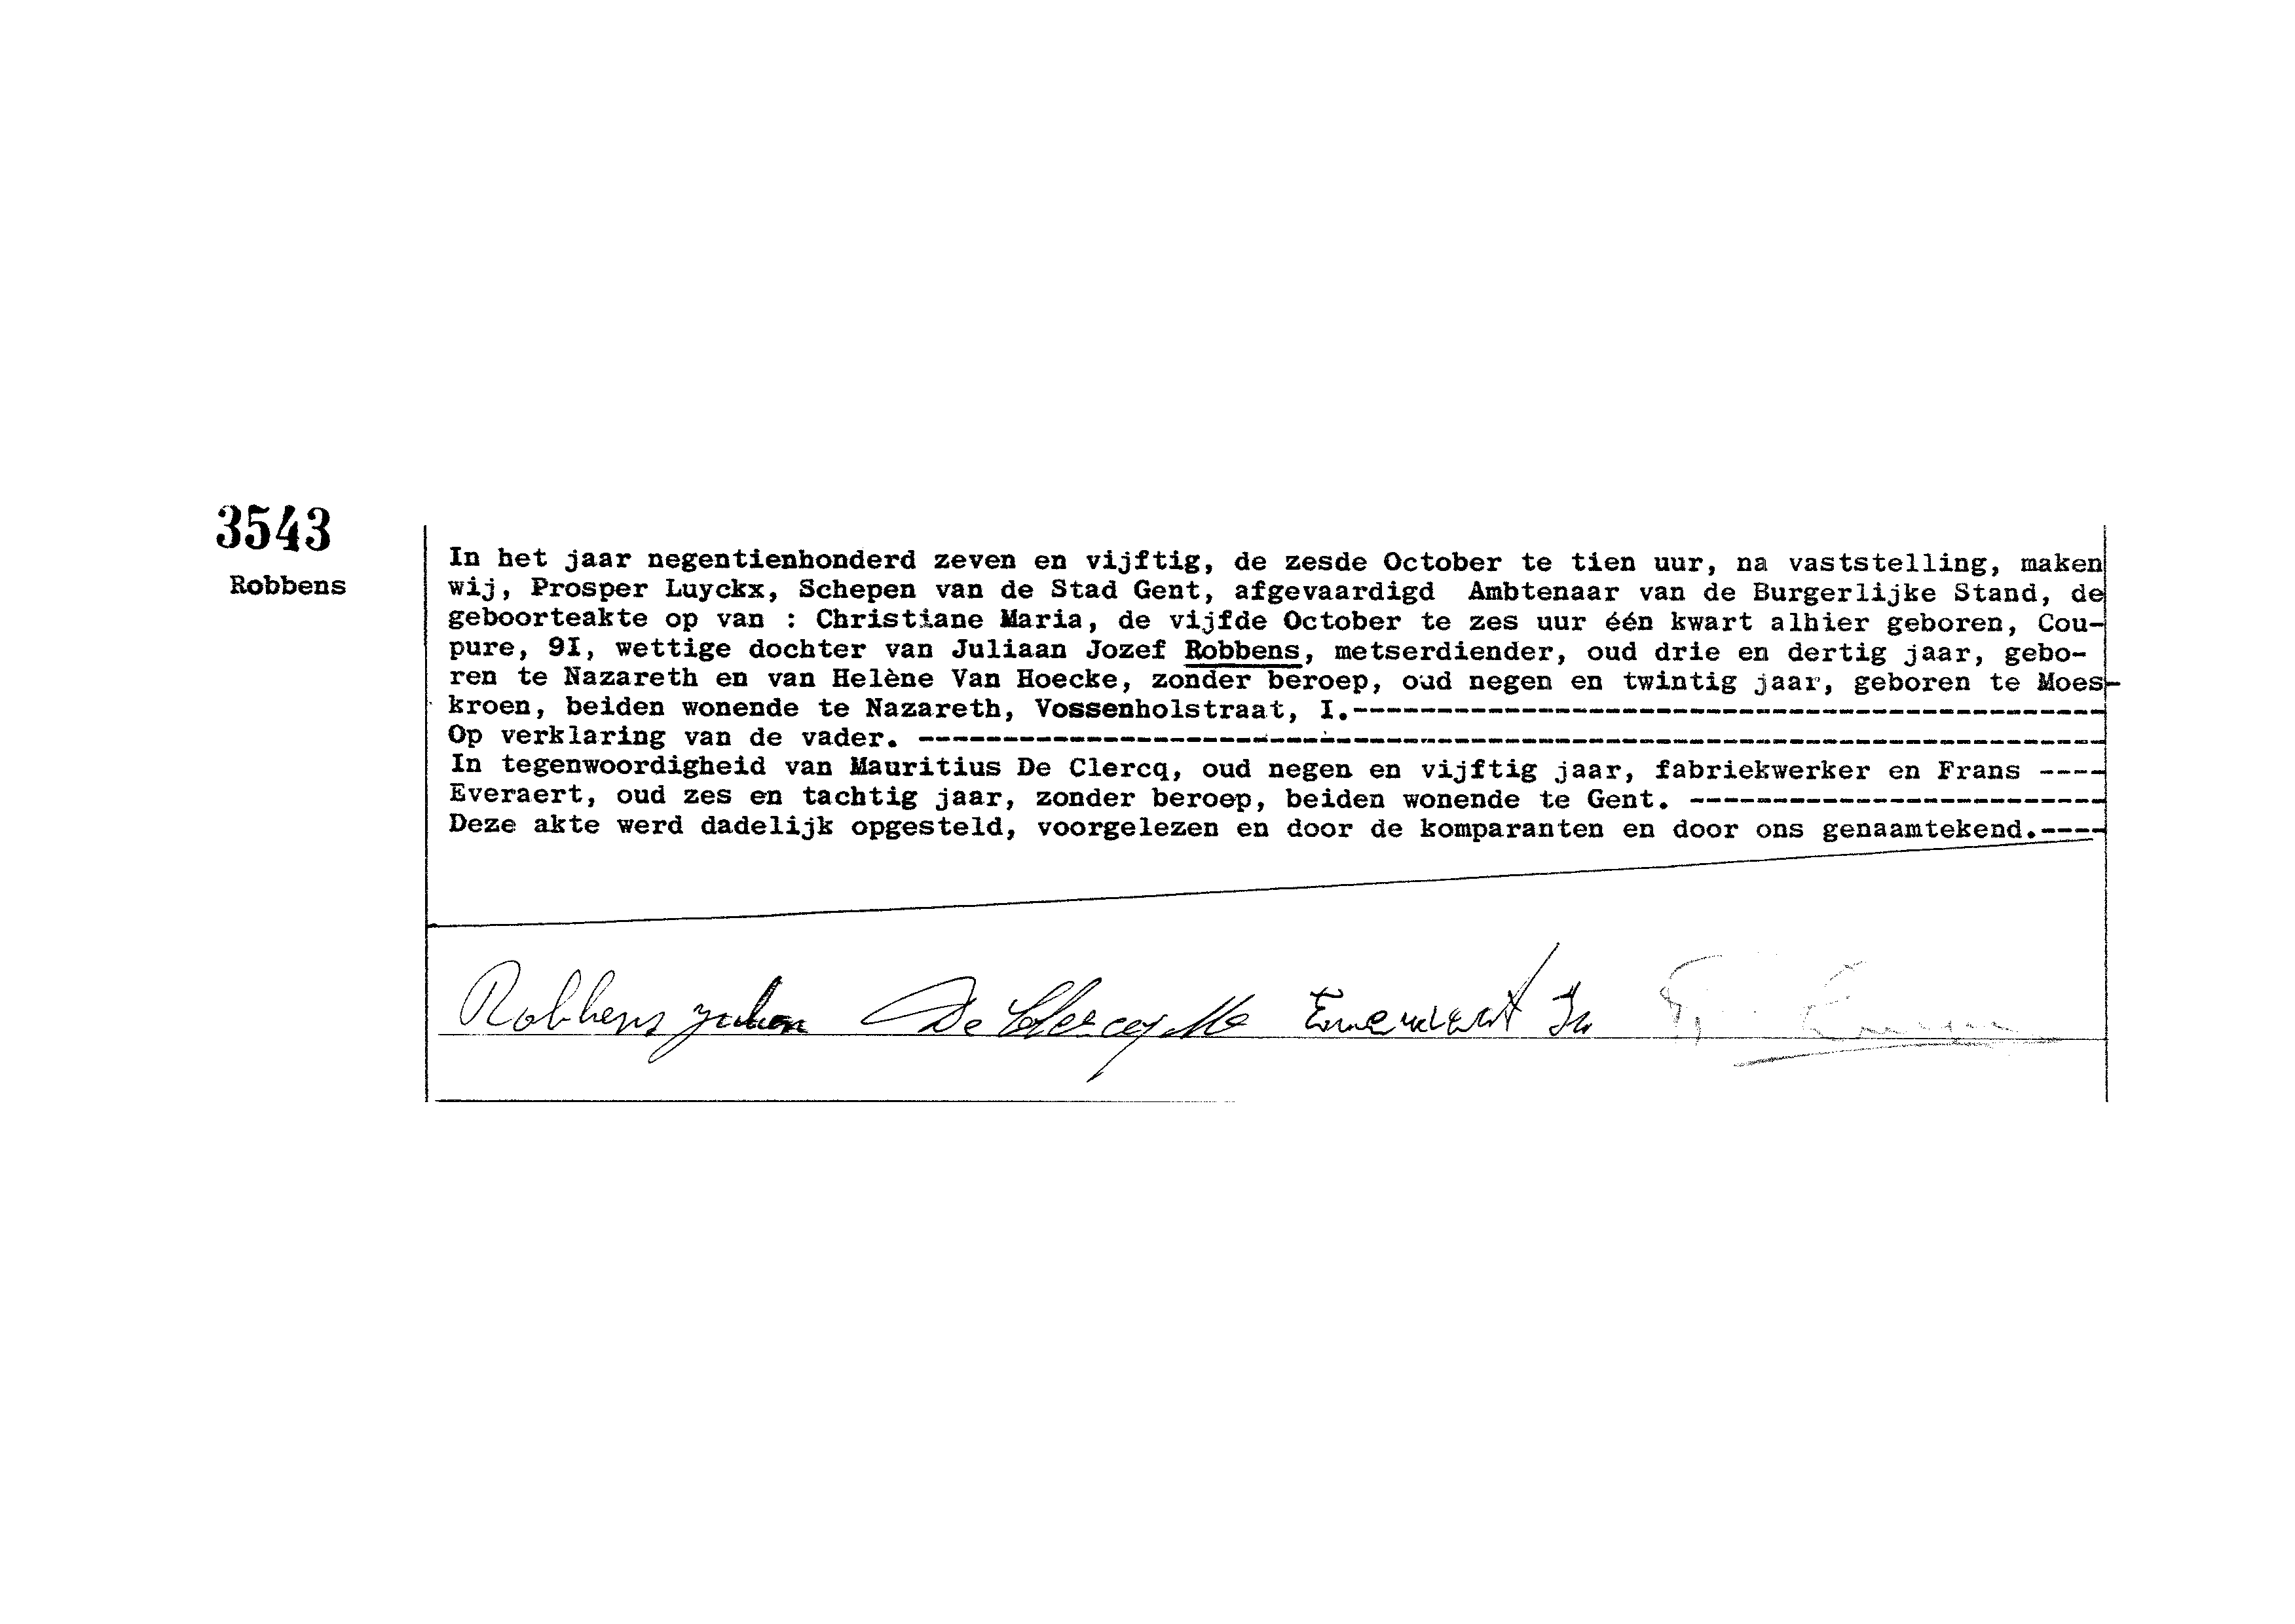 3543
Robbens
In het jaar negentienhonderd zeven en vijftig, de zesde October te tien uur, na vaststelling, maken
wij, Prosper Luyckx, Schepen van de Stad Gent, afgevaardigd Ambtenaar van de Burgerlijke Stand, de
geboorteakte op van : Christiane Maria, de vijfde October te zes uur één kwart alhier geboren, Cou-
pure, 9I, wettige dochter van Juliaan Jozef Robbens, metserdiender, oud drie en dertig jaar, gebo-
ren te Nazareth en van Helène Van Hoecke, zonder beroep, oud negen en twintig jaar, geboren te Moes-
kroen, beiden wonende te Nazareth, Vossenholstraat, I.
Op verklaring van de vader.
In tegenwoordigheid van Mauritius De Clercq, oud negen en vijftig jaar, fabriekwerker en Frans
Everaert, oud zes en tachtig jaar, zonder beroep, beiden wonende te Gent.
Deze akte werd dadelijk opgesteld, voorgelezen en door de komparanten en door ons genaamtekend.
Robbens De Clercq